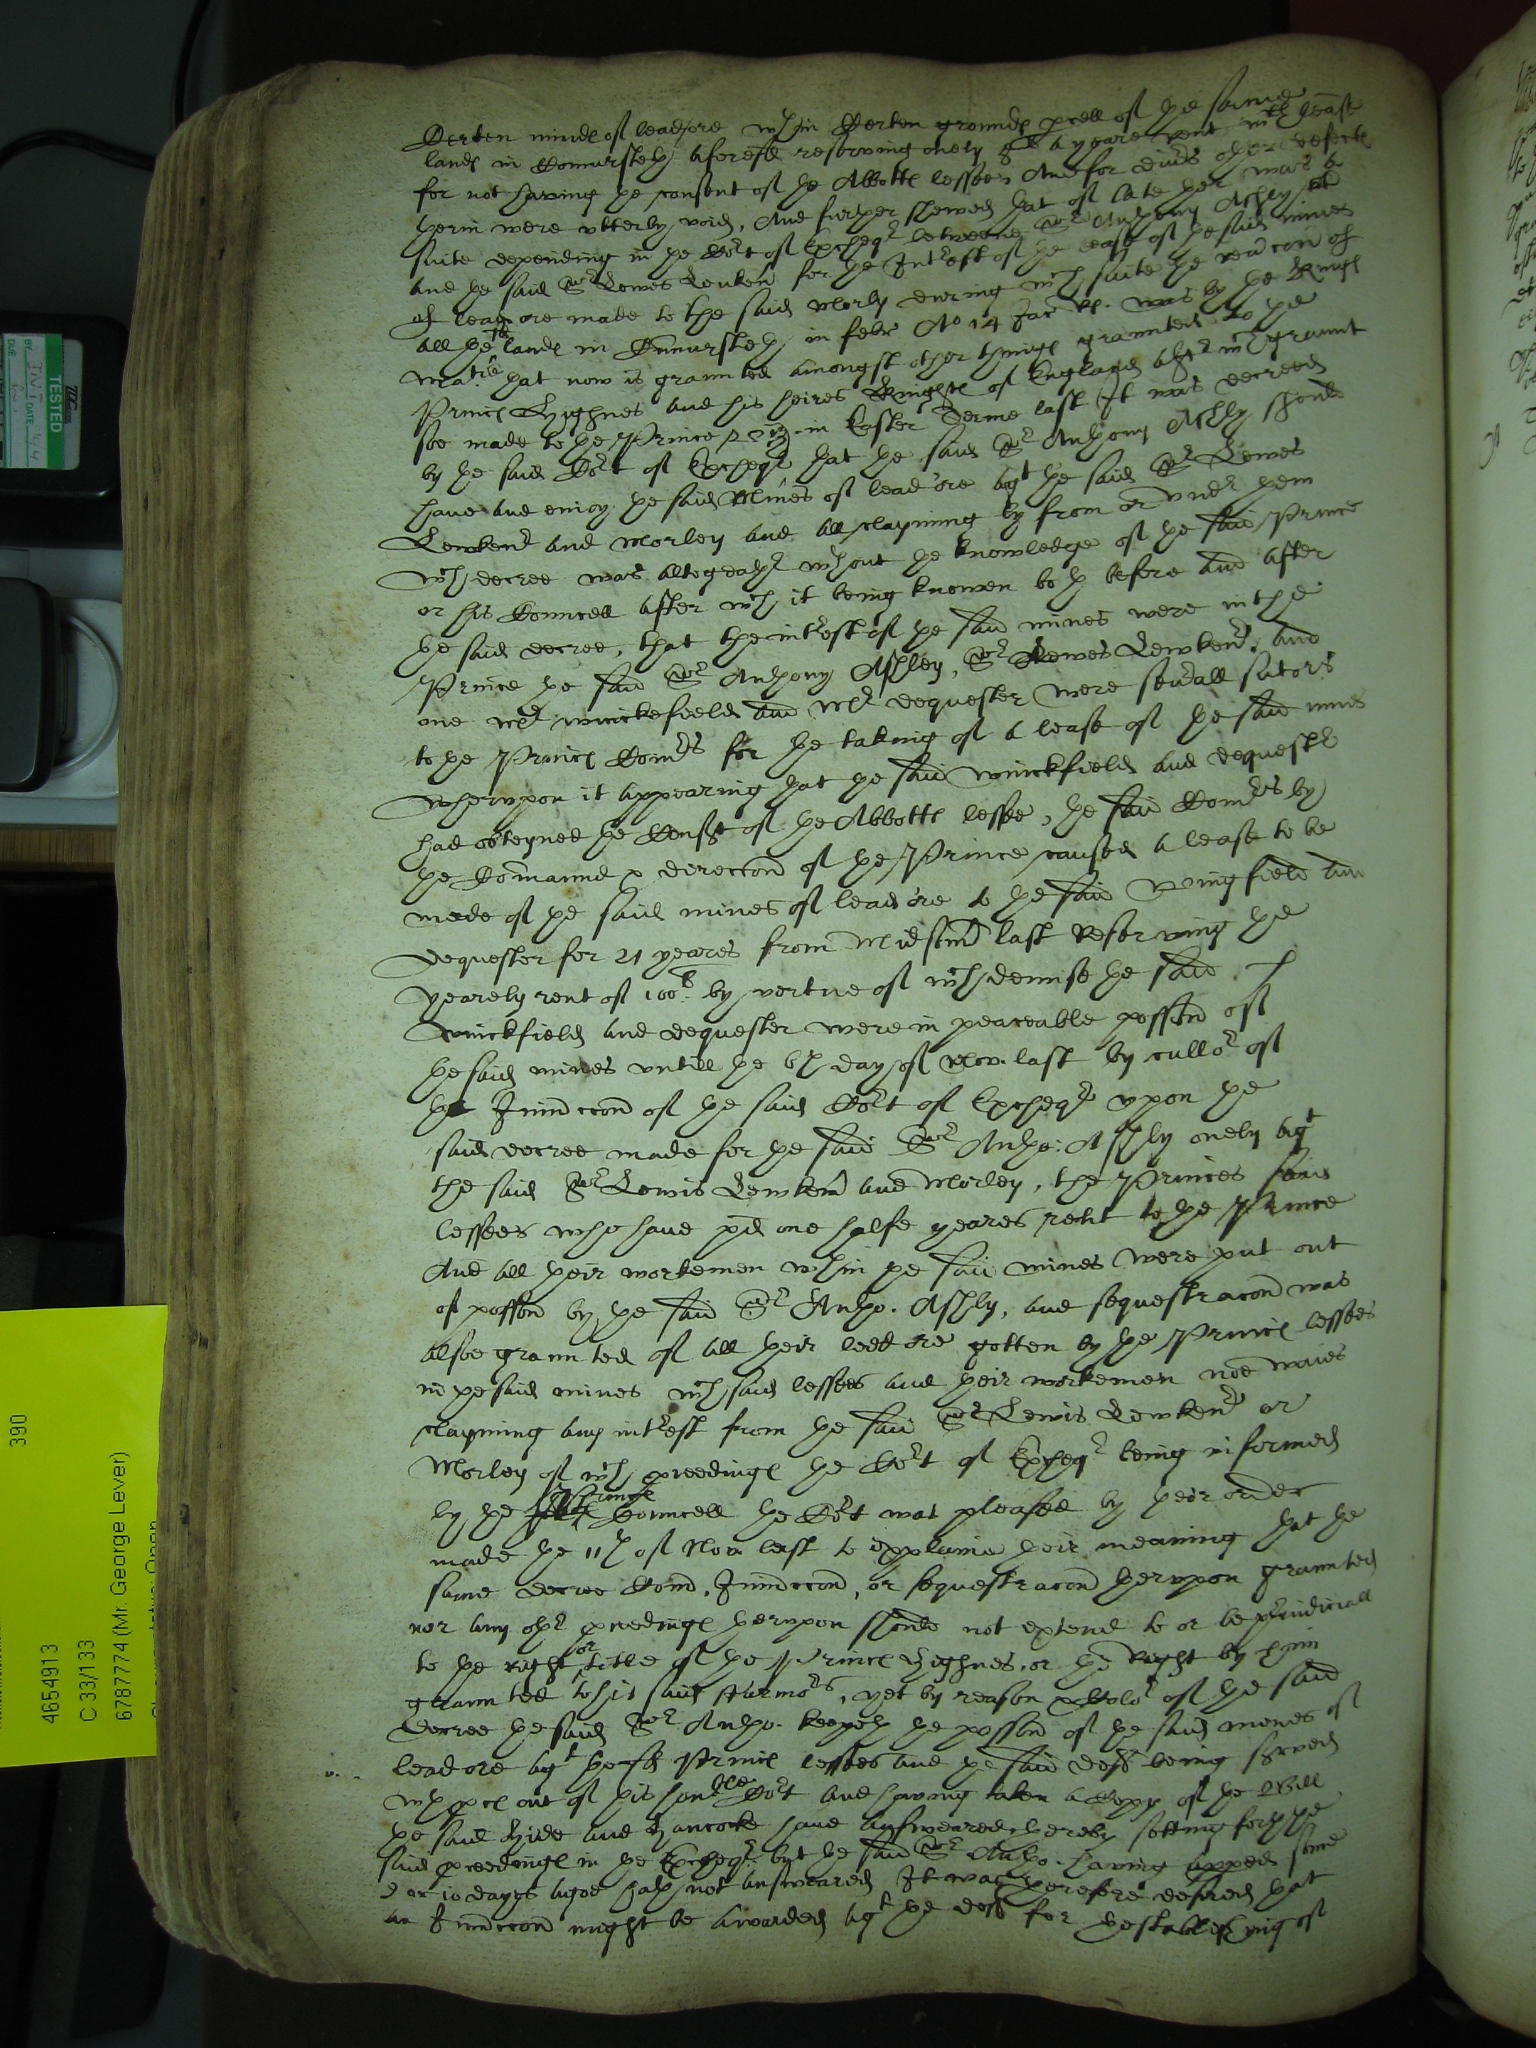 Certen mines of lead ore wthin Certen grounds pcell of the same
lands in aforesd reserving onely a yeare rent wch lease
for not having the consent of the Abbotts lessee And for divrs other defects
therin were utterly void, And further shewed that of late ther was a
suite depending in the Cort of Excheqr betweene Sr Anthony Ashly kt
and the said Sr Lewes Leukenr for the Intrest of the lease of the said mines
of lead ore made to the said Morly during wch suite the revrcon of
all the sd lands in in febr Ao 14 Jac Rs. was by the Kings
Matie that now is graunted amongst other things graunted to the
Princs Highnes and his heires Kinges of England aftr wch graunt
soe made to the Prince vizt in Easter Terme last It was decreed
by the said Cort of Excheqr that the said Sr Anthony Ashly should
have and enioy the said Mines of lead ore agt the said Sr Lewes
Lewkenr and Morley and all clayming by from or undr them
wch decree was altogeathr wthout the knowledge of the said Prince
or his Councell after wch it being knowen both before and after
the said decree, that the intrest of the said mines were in the
Prince the said Sr Anthony Ashley, Sr Lewes Lewkenr, and
one Mr Winckefeild and Mr Dequester were sevrall sutors
to the Princs Comrs for the taking of a lease of the said mines
wherupon it appearing that the said Winckfield and Dequestr
had obteyned the Consent of the Abbotts lessee, the said Comrs by
the Comaund & direccon of the Prince caused a lease to be
made of the said mines of lead ore to the said Wingfield and
Dequester for 21 yeares from Midsomr last Reserving the
yearely rent of 100li by vertue of wch demise the said
Winckfield and Dequester were in peaceable possion of
the said mines untill the 6th day of Nov. last by cullor of
the Iniunccon of the said Cort of Excheqr upon the
said decree made for the said Sr Antho: Ashly onely agt
the said Sr Lewis Lewkenr and Morley, the Princes said
lessees who have pd one halfe yeares rent to the Prince
And all their workemen wthin the said mines were put out
of possion by the said Sr Antho. Ashly, and sequestracon was
alsoe graunted of all their lead ore gotten by the Princs lessees
in the said mines wch said lessees and their workemen noe waies
clayming any intrest from the said Sr Lewis Lewkenr or
Morley of wch pceedings the Cort of Excheqr being informed
by the Princs Councell the Cort was pleased by their order
made the 11th of Nov. last to explaine their meaning that the
same decree Iniunccon, or sequestracon therupon graunted
nor any othr pceedings therupon should not extend to or be preiudiciall
to the right or title of the Princs Highnes, or the Right by him
graunted to his said Farmors, yet by reason & Color of the said
Decree the said Sr Antho. keepeth the possion of the said mines of
lead ore agt the sd Princs lessees and the said deft being served
wth pces out of this honble Cort and having taken a Coppy of the Bill
the said Hide and Hancocke have answeared therby setting forth the
said pceedings in the Excheqr but the said Sr Antho. having appeed some
9 or 10 dayes agoe hath not answeared It was therefore desired that
an Iniunccon might be awarded agt the deft for Establishing of
TESTED
DATE
DUE
390
4654913
C 33/133
6787774 (Mr. George Lever)